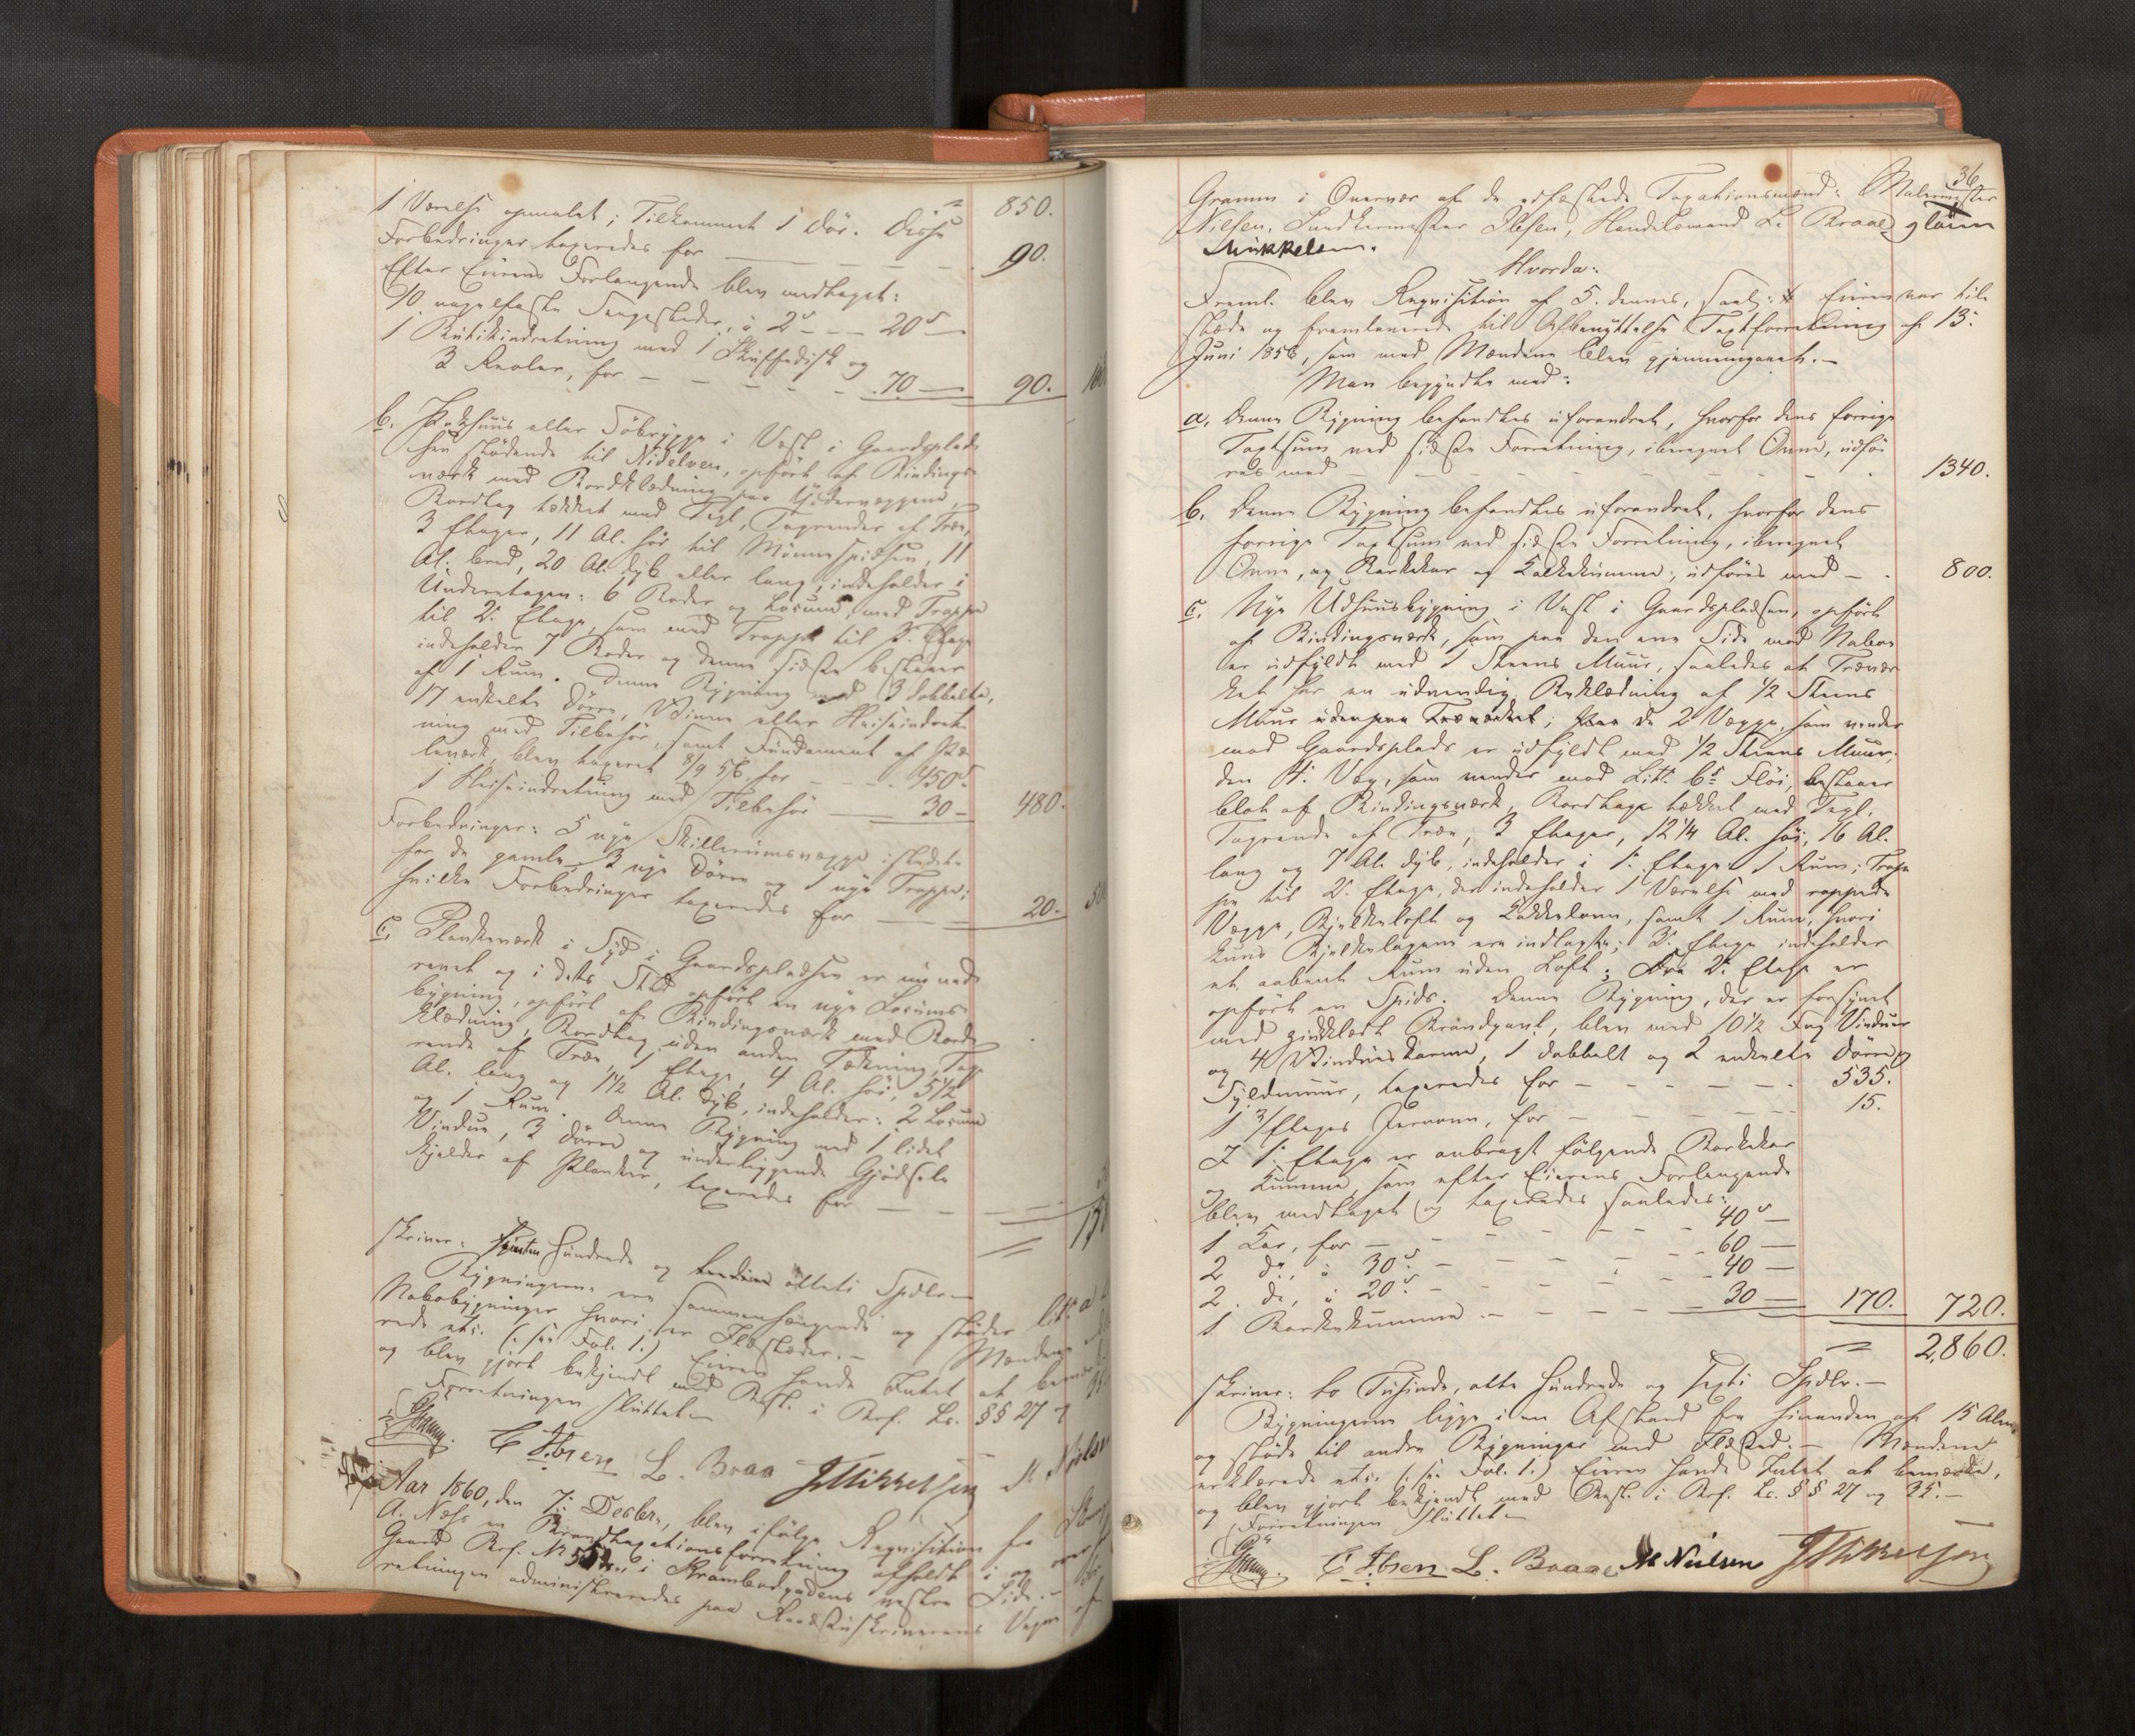 1 Værelse opmalet; Tilkommet 1 Dör. Disse = 850.
Forbedringer taxeredes for — — — — 90.
Efter Eierens Forlangende blev medtaget:
10 nagelfaste Sengesteder, à 2 — — 20 —
1 Butikindretning med 1 Skuffedisk og
3 Reoler, for — — — — 70 — 90.
b. Pakhuus eller Söbrygge i Vest i Gaardsplad-
sen stödende til Nidelven, opfört af Bindings-
værk med Bordklædning paa Ydervæggene,
Bordtag tækket med Tegl, Tagrender af Træ,
3 Etager, 11 Al. höi til Mönnespidsen, 11
Al. bred, 20 Al. dyb eller lang, indeholder i
Underetagen: 6 Boder og Locum, med Trappe
til 2. Etage, som med Trappe til 3. Etage
indeholder 7 Boder og denne sidste bestaaer
af 1 Rum. Denne Bygning med 3 dobbelte,
17 enkelte Dörre, Vinne eller Heiseindret-
ning med Tilbehör, samt Fundament af Pæ-
leværk, blev taxeret 8/9 56, for — — 450
1 Heiseindretning med Tilbehör — 30 — 480.
Forbedringer: 5 nye Skillerumsvægge istedet-
for de gamle, 3 nye Dörre og 1 nye Trappe;
hvilke Forbedringer taxeredes for — 20.
c. Plankeværk i Syd i Gaardspladsen er nu ned-
revet og i dets Sted opfört en nye Locums-
bygning, opfört af Bindingsværk med Bord-
klædning, Bordtag uden anden Tækning, Tag-
rende af Træ, 1 Etage, 4 Al. höi, 5 1/2
Al. lang og 1 1/2 Al. dyb, indeholder: 2 Locum
og 1 Rum. Denne Bygning med 1 lidet
Vindue, 3 Dörre og underliggende Gjödsel-
kjelder af Planker, taxeredes for — —
skriver: Hundrede og otteti Spdlr. —
Bygningerne ere sammenhængende og stöder litr a
Nabobygninger hvori er Ildsteder. — Mændene
rede etc. (: see Fol. 1:) Eieren havde Intet at
og blev gjort bekjendt med Best. i Brf. Lr. §§ 27 og
Forretningen sluttet.
C Ibsen L. Braa J Mikkelsen
Aar 1860, den 7: Decbr., blev ifölge Requisition fra
A. Næss en Brandtaxationsforretning afholdt i og over
Gaard Brf. N i Krambodgadens vestre Side. —
retningen administreredes paa Raadstuskriverens Vegne af
36
Gramm i Overvær af de edfæstede Taxationsmænd: Malermester
Nilsen, Ibsen, Handelsmand L. Braae,
Mikkelsen.
Hvorda:
Freml. blev Requisition af 5. dennes, saal: Eieren var til-
stede og fremleverede til Afbenyttelse Taxtforretning af 13:
Juni 1856, som med Mændene blev gjennemgaaet. —
Man begyndte med:
a. Denne Bygning befandtes uforandret, hvorfor dens forrige
Taxtsum ved sidste Forretning, iberegnet Ovne, udfö-
res med — — — — 1340.
b. Denne Bygning befandtes uforandret, hvorfor dens
forrige Taxtsum ved sidste Forretning, iberegnet
Ovne, og Barkekar og Kalkekumme, udföres med — 800.
c. Nye Udhuusbygning i Vest i Gaardspladsen, opfört
af Bindingsværk, som paa den ene Side mod Naboen
er udfyldt med 1 Steens Muur, saaledes at Trævær-
ket har en udvendig Beklædning af 1/2 Steens
Muur udenpaa Træværket; Paa de 2 Vægge, som vender
mod Gaardsplads er udfyldt med 1/2 Steens Muur;
den 4. Væg, som vender mod Litr. b: Flöi, bestaaer
blot af Bindingsværk, Bordtage tækket med Tegl,
Tagrende af Træ, 3 Etager, 12 1/4 Al. höi, 16 Al.
lang og 7 Al. dyb, indeholder i 1: Etage 1 Rum; Trap-
pe til 2. Etage, der indeholder 1 Værelse med rappede
Vægge, Bjelkeloft og Kakkelovn, samt 1 Rum, hvori
kuns Bjelkelagene ere indlagte; 3: Etage indeholder
et aabent Rum uden Loft; Fra 2. Etage er
opfört en Spids. Denne Bygning, der er forsynet
med Brandgavl, blev med 10 1/2 Fag Vinduer
og 4 Vindueskarme, 1 dobbelt og 2 enkelte Dörre,
Fyldmuur, taxeredes for — — — 535.
1 3/Etages Jernovn, for — — — 15.
I 1: Etage er anbragt fölgende Barkekar
og Kumme, som efter Eierens Forlangende
blev medtaget og taxeredes saaledes:
1 Kar, for — — — 40 —
2 do, à 30 — — — 60 —
2. do, à 20 — — — 40 —
1 Barkekumme — — — 30 — 170. 720.
= 2,860.
skriver: to Tusinde, otte Hundrede og sexti Spdlr. —
Bygningerne ligge i en Afstand fra hinanden af 15 Alen
og stöde til andre Bygninger med Ildsted. — Mændene
erklærede etc. (: see Fol. 1:) Eieren havde Intet at bemærke,
og blev gjort bekjendt med Best. i Brf. Lr. §§ 27 og 35. —
Forretningen sluttet
C Ibsen L. Braae M Nielsen J Mikkelsen